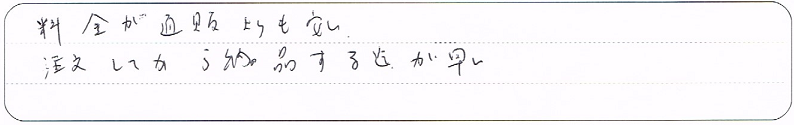 料金が通販よりも安い
注文してから納品する迄が早い